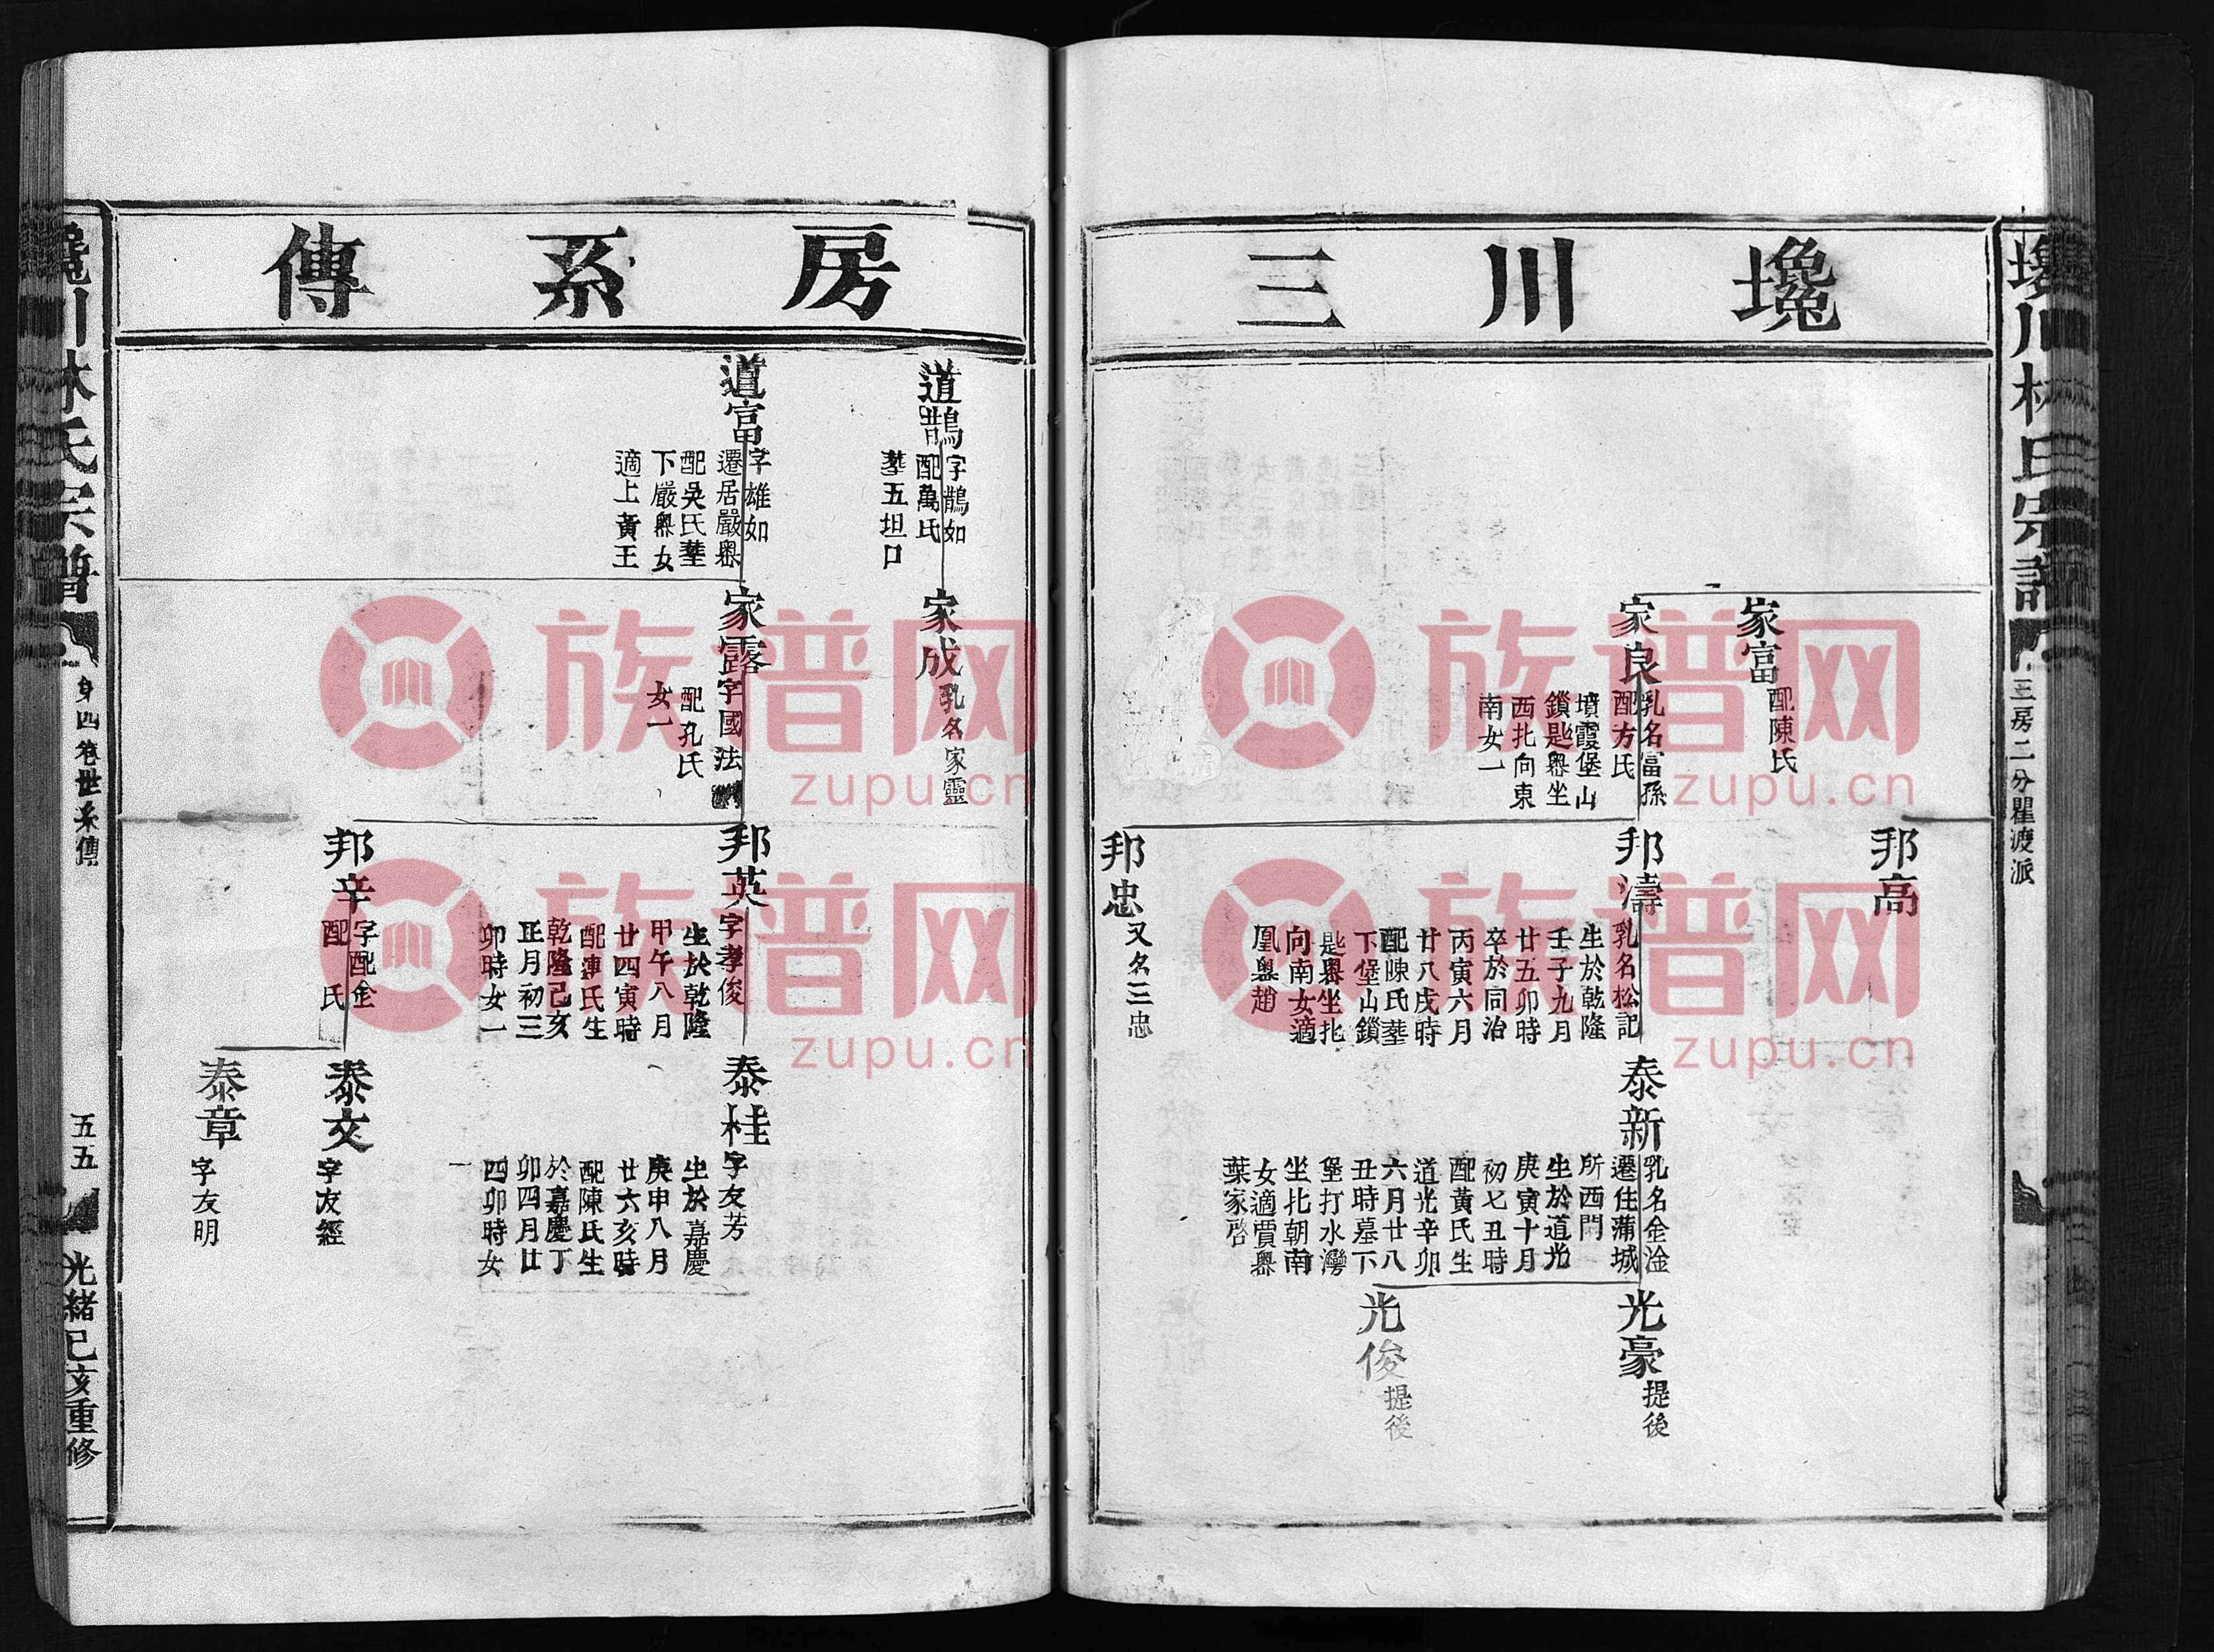 三川堍
林氏宗譜
三房二分瞿渡派
邦高
家富
配陳氏
家良
乳名富孫
配方氏
墳霞堡山
鎖匙舉坐
西北向東
南女一
邦濤
乳名松記
生於乾隆
壬子九月
廿五卯時
卒於同治
丙寅六月
廿八戌時
配陳氏墓
下堡山鎖
坐北
向南女適
趙
泰新
乳名金淦
遷住蒲城
所西門
生於道光
庚寅十月
初七丑時
配黃氏生
道光辛卯
六月廿八
丑時墓下
堡打水灣
坐北朝南
女適賈
葉家啓
光豪
提後
光俊
提後
邦忠
又名三忠
傳系房
道鵲
字鵲如
配萬氏
墓五坦口
家成
乳名家靈
道富
字雄如
遷居嚴
配吳氏墓
下嚴 女
適上黃王
家露
字國法
配孔氏
女一
邦英
字孝俊
生於乾隆
甲午八月
廿四寅時
氏生
乾隆己亥
正月初三
卯時女一
泰桂
字友芳
生於嘉慶
庚申八月
廿六亥時
配陳氏生
於嘉慶丁
卯四月廿
四卯時女
一
邦辛
字配金
配 氏
泰文
字友經
泰章
字友明
川林氏宗譜
四卷世系傳
五五
光緒己亥重修
族谱网
zupu.cn
族谱网
zupu.cn
族谱网
zupu.cn
族谱网
zupu.cn